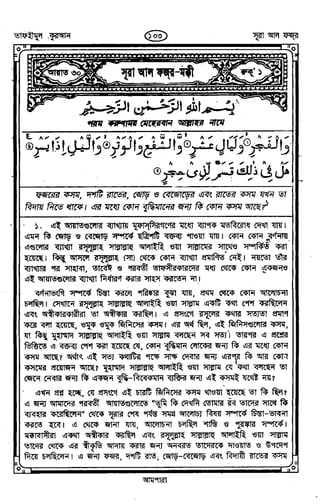 তাফহীমুল কুরআন
১০৩
সূরা আল ফজর
আয়াত ৩০
সূরা আল ফজর-মক্কী
রুকূ’ ১
بِسْمِ اللهِ الرَّحْمٰنِ الرَّحِيْمِ
পরম করুণাময় মেহেরবান আল্লাহর নামে
وَالْفَجْرِ ۝ وَلَيَالٍ عَشْرٍ ۝ وَالشَّفْعِ وَالْوَتْرِ ۝ وَالَّيْلِ إِذَا يَسْرِ ۝
هَلْ فِيْ ذٰلِكَ قَسَمٌ لِّذِيْ حِجْرٍ ۝
ফজরের কসম, দশটি রাতের, জোড় ও বেজোড়ের এবং রাতের কসম যখন তা
বিদায় নিতে থাকে। এর মধ্যে কোন বুদ্ধিমানের জন্য কি কোন কসম আছে?১
১. এই আয়াতগুলোর ব্যাখ্যায় মুফাস্‌সিরগণের মধ্যে ব্যাপক মতবিরোধ দেখা যায়।
এমন কি জোড় ও বেজোড় সম্পর্কে ছত্রিশটি বক্তব্য পাওয়া যায়। কোন কোন বর্ণনায়
এগুলোর ব্যাখ্যা রসূলুল্লাহ সাল্লাল্লাহু আলাইহি ওয়া সাল্লামের সাথেও সম্পর্কিত করা
হয়েছে। কিন্তু আসলে রসূলুল্লাহ (সা) থেকে কোন ব্যাখ্যা প্রমাণিত নেই। নয়তো তাঁর
ব্যাখ্যার পর সাহাবা, তাবেঈ ও পরবর্তী তাফসীরকারদের মধ্য থেকে কোন একজনও
এই আয়াতগুলোর ব্যাখ্যা নির্ধারণ করার সাহস করতেন না।
বর্ণনাভংগি সম্পর্কে চিন্তা করলে পরিষ্কার বুঝা যায়, প্রথম থেকে কোন আলোচনা
চলছিল। সেখানে রসূলুল্লাহ সাল্লাল্লাহু আলাইহি ওয়া সাল্লাম একটি কথা পেশ করছিলেন
এবং অস্বীকারকারীরা তা অস্বীকার করছিল। এ প্রসংগে রসূলের কথার সত্যতা প্রমাণ
করে বলা হয়েছে, ওমুক ওমুক জিনিসের কসম। এর অর্থ ছিল, এই জিনিসগুলোর কসম,
যা কিছু মুহাম্মাদ সাল্লাল্লাহু আলাইহি ওয়া সাল্লাম বলছেন সব সত্য। তারপর এ প্রশ্নের
ভিত্তিতে এ বক্তব্য পেশ করা হয়েছে যে, কোন বুদ্ধিমান লোকের জন্য কি এর মধ্যে কোন
কসম আছে? অর্থাৎ এই সত্য কথাটির পক্ষে সাক্ষ দেবার জন্য এরপর কি আর কোন
কসমের প্রয়োজন আছে? মুহাম্মাদ সাল্লাল্লাহু আলাইহি ওয়া সাল্লাম যে কথা বলছেন তা
জেনে নেবার জন্য কি একজন বুদ্ধি-বিবেকমান ব্যক্তির জন্য এই কসমই যথেষ্ট নয়?
এখন প্রশ্ন হচ্ছে, যে প্রসংগে এই চারটি জিনিসের কসম খাওয়া হয়েছে তা কি ছিল?
এ জন্য আমাদের পরবর্তী আয়াতগুলোতে "তুমি কি দেখনি তোমার রব তাদের সাথে কি
ব্যবহার করেছিলেন" থেকে সূরার শেষ পর্যন্ত সমগ্র আলোচ্য বিষয় সম্পর্কে চিন্তা-ভাবনা
করতে হবে। এ থেকে জানা যায়, আলোচনা চলছিল শাস্তি ও পুরস্কার সম্পর্কে।
মক্কাবাসীরা একথা অস্বীকার করছিল এবং রসূলুল্লাহ সাল্লাল্লাহু আলাইহি ওয়া সাল্লাম
তাদের থেকে এর স্বীকৃতি আদায় করার জন্য অনবরত তাদেরকে দাওয়াত ও উপদেশ
দিয়ে চলছিলেন। এ জন্য ফজর, দশটি রাত, জোড়-বেজোড় এবং বিদায়ী রাতের কসম
আমপারা